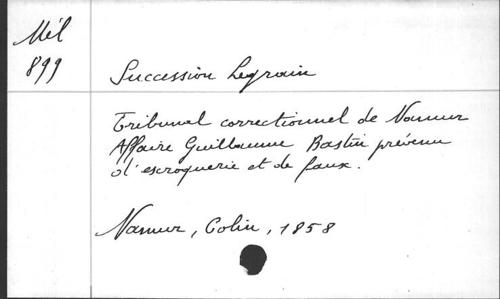 Mél
899
Succession Legrain
Tribunal correctionnel de Namur
Affaire Guillaume Bastin prévenu
d'escroquerie et de faux.
Namur, Colin, 1858